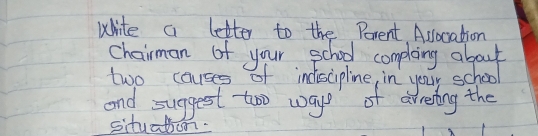 Write a letter to the Parent Assocation
Chairman of your school complaing about
two causes of indiscipline, in your school
and suggest two ways of arresting the
situation.